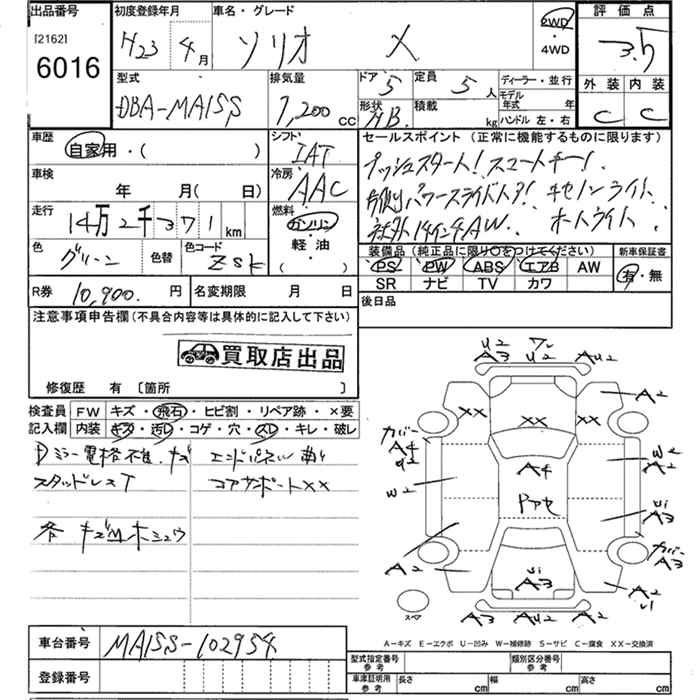 出品番号 初度登録年月 車名・グレード 評価点
[2162]
6016
H23年 4月 ソリオ X 2WD・4WD 3.5
型式 排気量 ドア 5 定員 5人 ディーラー・並行 外装 内装
DBA-MA15S 1,200cc 形状 HB. 積載 kg モデル年式 年 C C
ハンドル 左・右
車歴 シフト セールスポイント(正常に機能するものに限ります)
自家用・( ) IAT プッシュスタート! スマートキー!
車検 冷房 片側パワースライドドア! キセノンライト
年 月( 日) AAC 社外14インチAW. オートライト
走行 燃料
14万2千371km ガソリン・軽油( )
色 色替 色コード 装備品(純正品に限り○をつけてください) 新車保証書
グリーン ZSK PS PW ABS エアB AW 有・無
SR ナビ TV カワ
R券 10,900.円 名変期限 月 日 後日品
注意事項申告欄(不具合内容等は具体的に記入して下さい)
買取店出品
修復歴 有 [箇所 ]
検査員記入欄 FW キズ・飛石・ヒビ割・リペア跡・×要
内装 キズ・汚レ・コゲ・穴・スレ・キレ・破レ
ミラー電格不良.キズ エンドパネル曲り
スタッドレスT コアサポートXX
各 キズ凹ホシュウ
U2 ワレ
A3 U2 AU2
XX XX XX A2
カバー
A4 W2
A4 A2
W2 Pアセ
Ui
A3
カバー
A2 Ui A3
A3 A2
U1
スペア A2 AU2 A3
A-キズ E-エクボ U-凹み W-補修跡 S-サビ C-腐食 XX-交換済
車台番号 MA15S-102954
登録番号
型式指定番号 参考 類別区分番号 参考
車庫証明用 参考 長さ cm 幅 cm 高さ cm